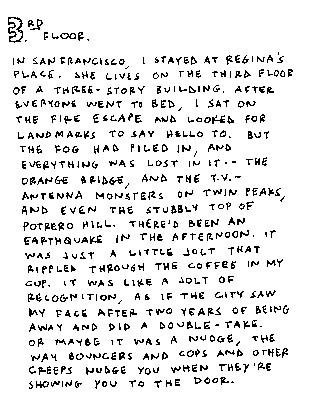 3RD
FLOOR.
IN SAN FRANCISCO, I STAYED AT REGINA'S
PLACE. SHE LIVES ON THE THIRD FLOOR
OF A THREE-STORY BUILDING. AFTER
EVERYONE WENT TO BED, I SAT ON
THE FIRE ESCAPE AND LOOKED FOR
LANDMARKS TO SAY HELLO TO. BUT
THE FOG HAD PILED IN, AND
EVERYTHING WAS LOST IN IT -- THE
ORANGE BRIDGE, AND THE T.V.-
ANTENNA MONSTERS ON TWIN PEAKS,
AND EVEN THE STUBBLY TOP OF
POTRERO HILL. THERE'D BEEN AN
EARTHQUAKE IN THE AFTERNOON. IT
WAS JUST A LITTLE JOLT THAT
RIPPLED THROUGH THE COFFEE IN MY
CUP. IT WAS LIKE A JOLT OF
RECOGNITION, AS IF THE CITY SAW
MY FACE AFTER TWO YEARS OF BEING
AWAY AND DID A DOUBLE-TAKE.
OR MAYBE IT WAS A NUDGE, THE
WAY BOUNCERS AND COPS AND OTHER
CREEPS NUDGE YOU WHEN THEY'RE
SHOWING YOU TO THE DOOR.